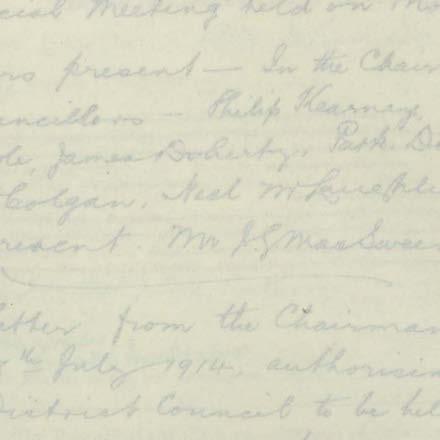 cial Meeting held on Mo
rs present — In the Chair
ncillors — Philip Kearney,
le, James Doherty, Patk. Do
Colgan, Neil
resent. Mr J G MacSwee
etter from the Chairman
th July 1914, authorisin
District Council to be hel